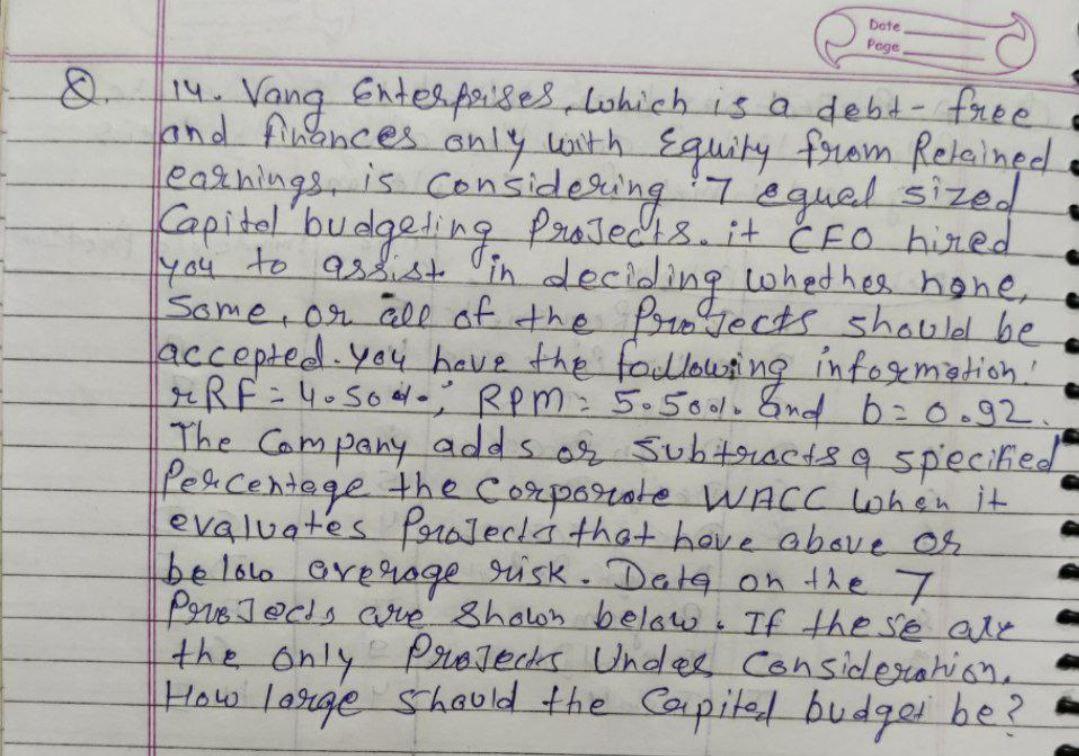 Date
Page
Q. 14. Vang Enterprises, which is a debt-free
and finances only with Equity from Retained
earnings, is Considering 7 equal sized
Capital budgeting Projects. it CFO hired
you to assist in deciding whether none,
Some, or all of the Projects should be
accepted. you have the following information!
rRF = 4.50%; RPM = 5.50%. and b = 0.92.
The Company adds or Subtracts a specified
Percentage the Corporate WACC when it
evaluates Projects that have above or
below average risk. Data on the 7
Projects are shown below. If these are
the only Projects Under Consideration.
How large should the Capital budget be?